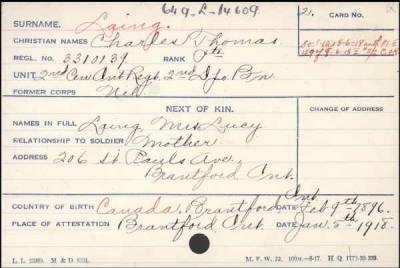 649-L-14609
SURNAME. Laing. 21. CARD NO.
CHRISTIAN NAMES Charles Thomas
REGL. NO. 3310139 RANK Pte
UNIT 2nd Cen. Ont. Regt. 2nd Dpo Bn
FORMER CORPS Nil
NEXT OF KIN. CHANGE OF ADDRESS
NAMES IN FULL Laing Mrs Lucy
RELATIONSHIP TO SOLDIER Mother
ADDRESS 206 St. Pauls Ave.,
Brantford Ont.
COUNTRY OF BIRTH Canada. Brantford Ont. DATE Feb 9th 1896.
PLACE OF ATTESTATION Brantford Ont. DATE Jan. 5th 1918.
M. F. W. 22.